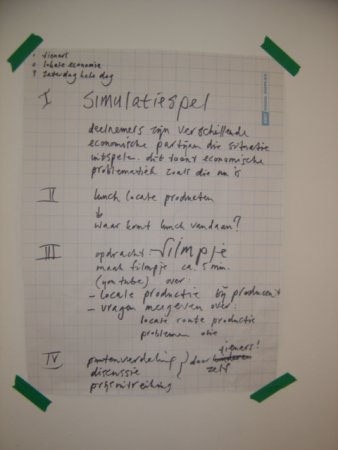 1. tieners
2. lokale economie
3. zaterdag hele dag
I simulatiespel
deelnemers zijn verschillende
economische partijen die situatie
uitspelen. dit toont economische
problematiek zoals die nu is
II lunch locale producten
↓
waar komt lunch vandaan?
III opdracht: filmpje
maak filmpje ca. 5 min.
(youtube) over:
- locale productie bij producent
- vragen meegeven over:
locale route productie
problemen
IV puntenverdeling } door tieners!
discussie zelf
prijsuitreiking